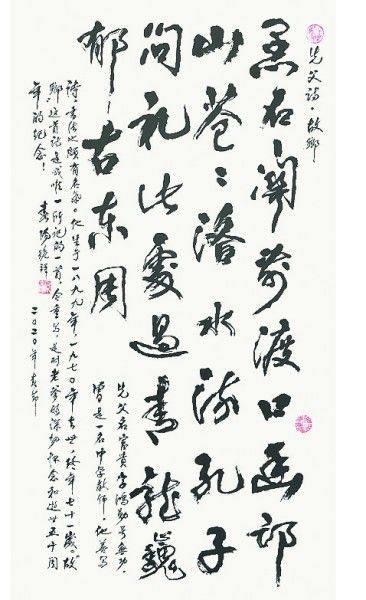 先父诗·故乡
黑石关前渡口幽邙
山苍々洛水流孔子
问礼此处过青龙巍
郁古东周
先父名富贵字鸿勋号无功,
曾是一名中学教师,他善写
诗,书法也颇有名气。他生于一八九九年,一九七〇年去世,终年七十一岁。“故
乡”这首诗是我唯一所记的一首,今重写,是对老爹的深切怀念和逝世五十周
年的纪念!
二〇二〇年春节